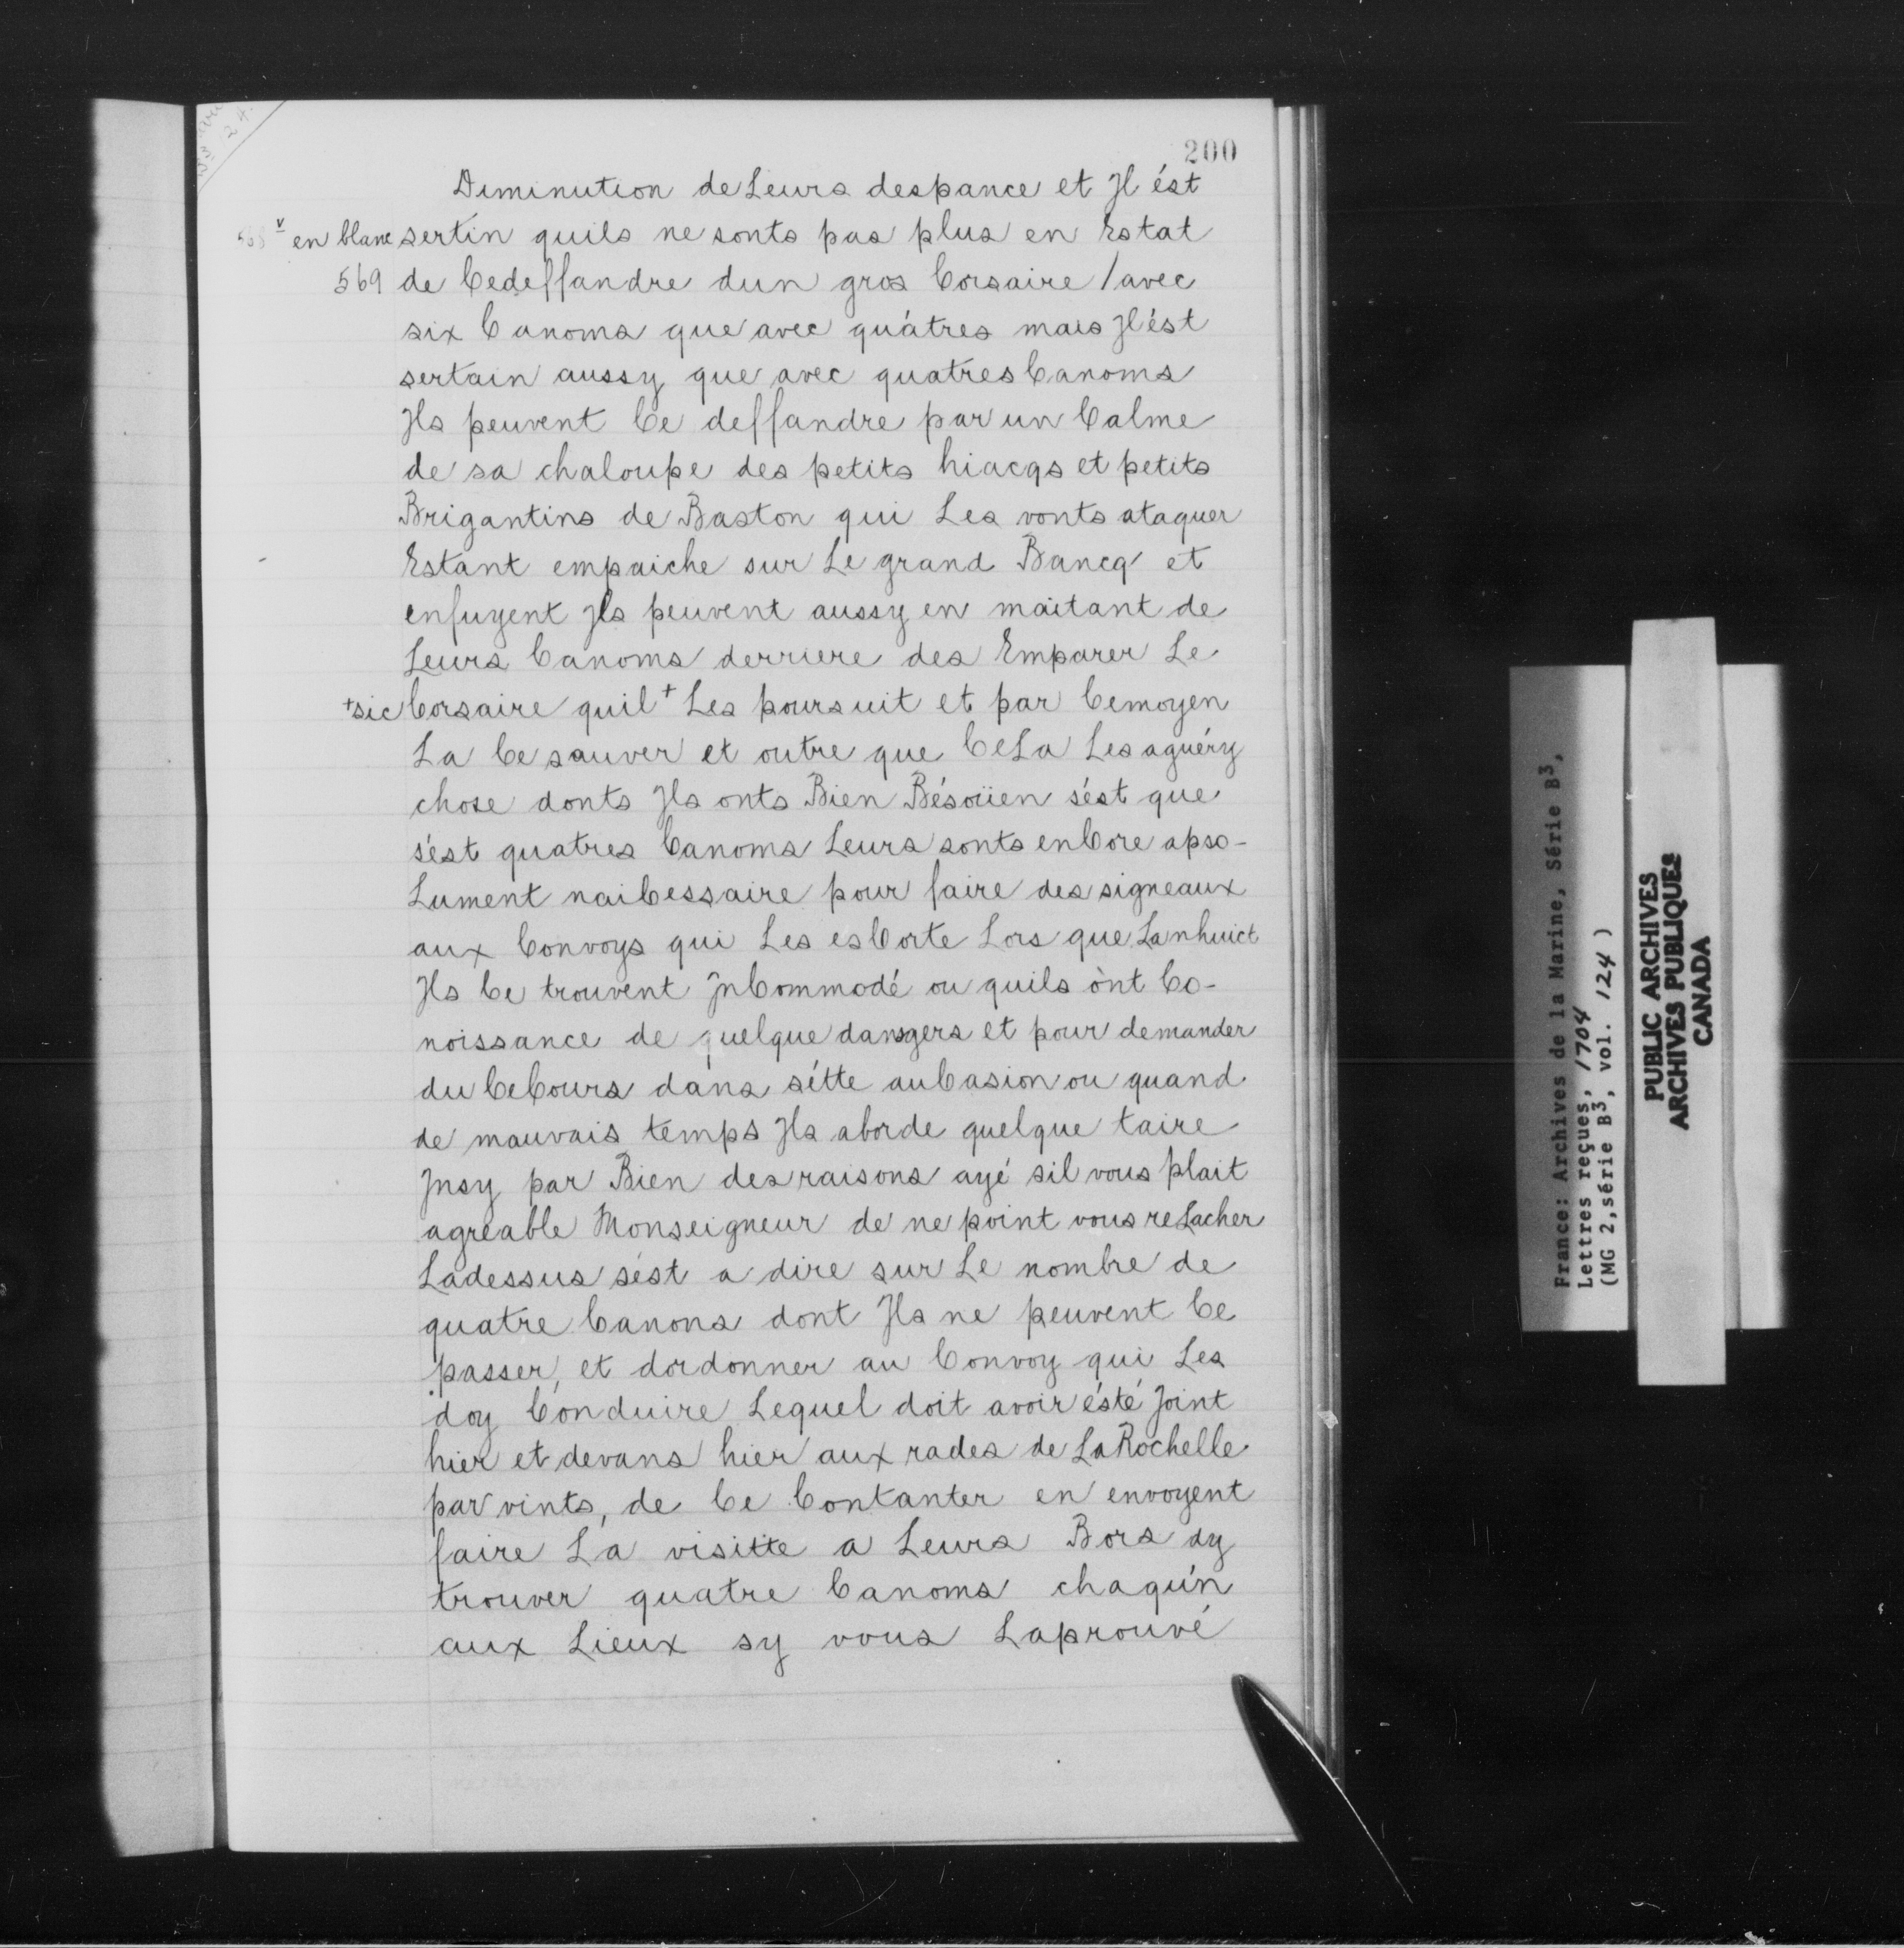 200
Diminution de Leurs despance et Jl ést
568 v en blanc sertin quils ne sonts pas plus en Estat
569 de Cedeffandre dun gros Corsaire / avec
six Canoms que avec quátres mais Jl ést
sertain aussy que avec quatres Canoms
Jls peuvent Ce deffandre par un Calme
de sa chaloupe des petits hiacqs et petits
Brigantins de Baston qui Les vonts ataquer
Estant empaiche sur Le grand Bancq et
enfuyent Jls peuvent aussy en maitant de
Leurs Canoms derriere des Emparer Le
+sic Corsaire quil + Les poursuit et par Cemoyen
La Ce sauver et outre que CeLa Les aguéry
chose donts Jls onts Bien Bésoüen sést que
sést quatres Canoms Leurs sonts enCore apso-
Lument naiCessaire pour faire des signeaux
aux Convoys qui Les esCorte Lors que Lanhuict
Jls Ce trouvent JnCommodé ou quils ònt Co-
noissance de quelque dansgers et pour demander
du CeCours dans sétte auCasion ou quand
de mauvais temps Jls aborde quelque taire
Jnsy par Bien des raisons ayé sil vous plait
agreable Monseigneur de ne point vous reLacher
Ladessus sést a dire sur Le nombre de
quatre Canons dont Jls ne peuvent Ce
passer, et dordonner au Convoy qui Les
doy Conduire Lequel doit avoir ésté Joint
hier et devans hier aux rades de La Rochelle
par vints, de Ce Contanter en envoyent
faire La visitte a Leurs Bors dy
trouver quatre Canoms chaqún
aux Lieux sy vous Laprouvé
France: Archives de la Marine, Série B3,
Lettres reçues, 1704
(MG 2,série B3, vol. 124 )
PUBLIC ARCHIVES
ARCHIVES PUBLIQUES
CANADA